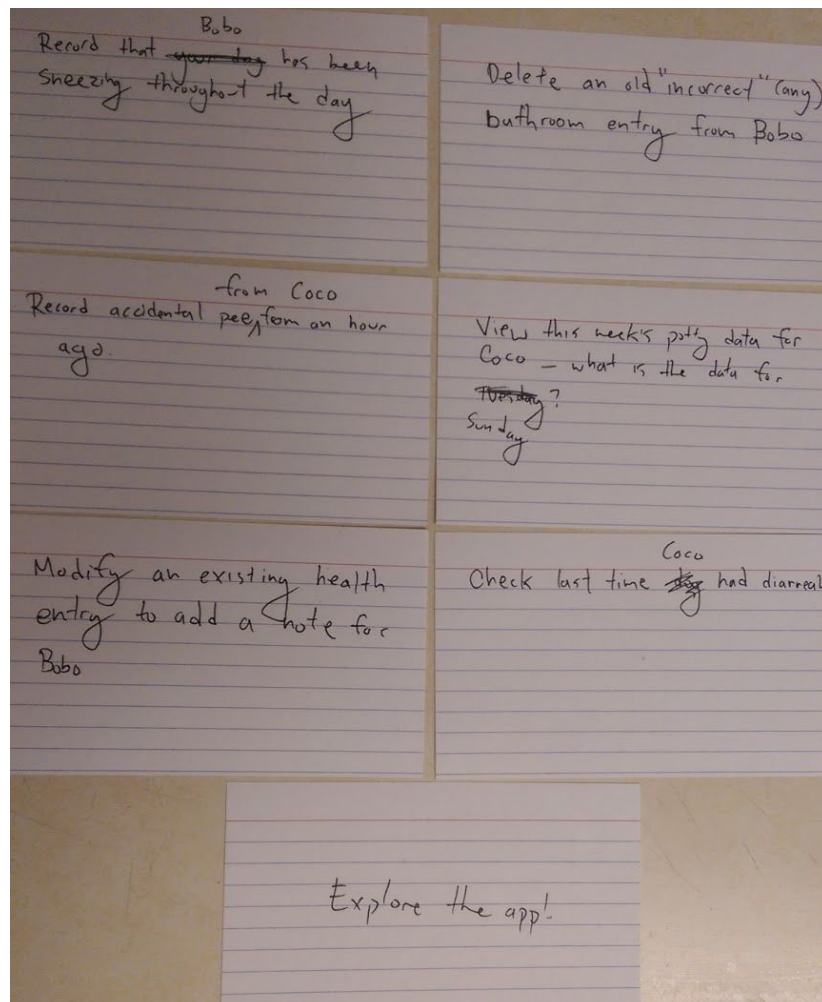 Bobo
Record that your dog has been
sneezing throughout the day
Delete an old "incorrect" (any)
bathroom entry from Bobo
from Coco
Record accidental pee, from an hour
ago.
View this week's potty data for
Coco – what is the data for
Tuesday?
Sunday
Modify an existing health
entry to add a note for
Bobo
Coco
Check last time dog had diarreal
Explore the app!